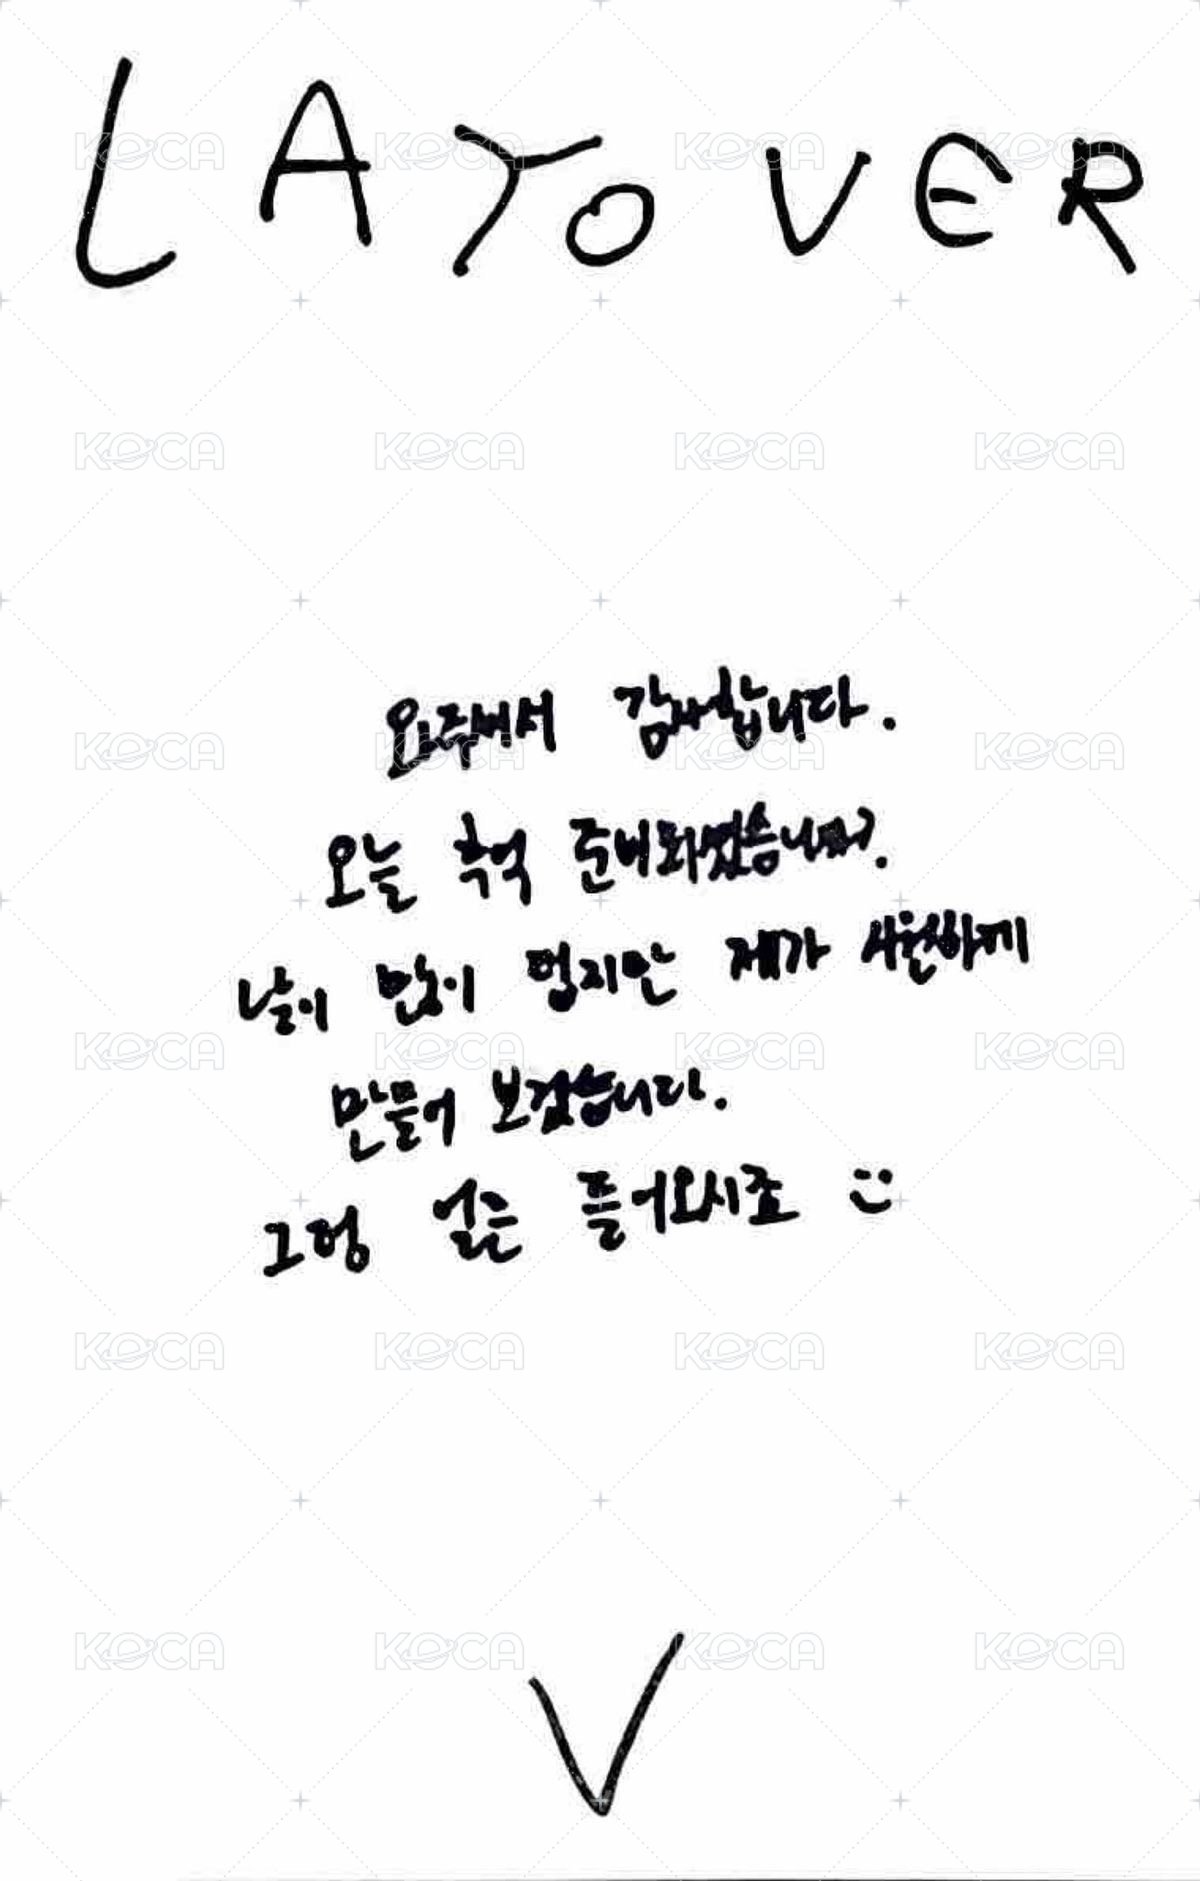 LAYOVER
와주셔서 감사합니다.
오늘 추억 준비되었습니다.
날이 많이 덥지만 제가 시원하게
만들어 보겠습니다.
그럼 얼른 들어오시죠 :)
V